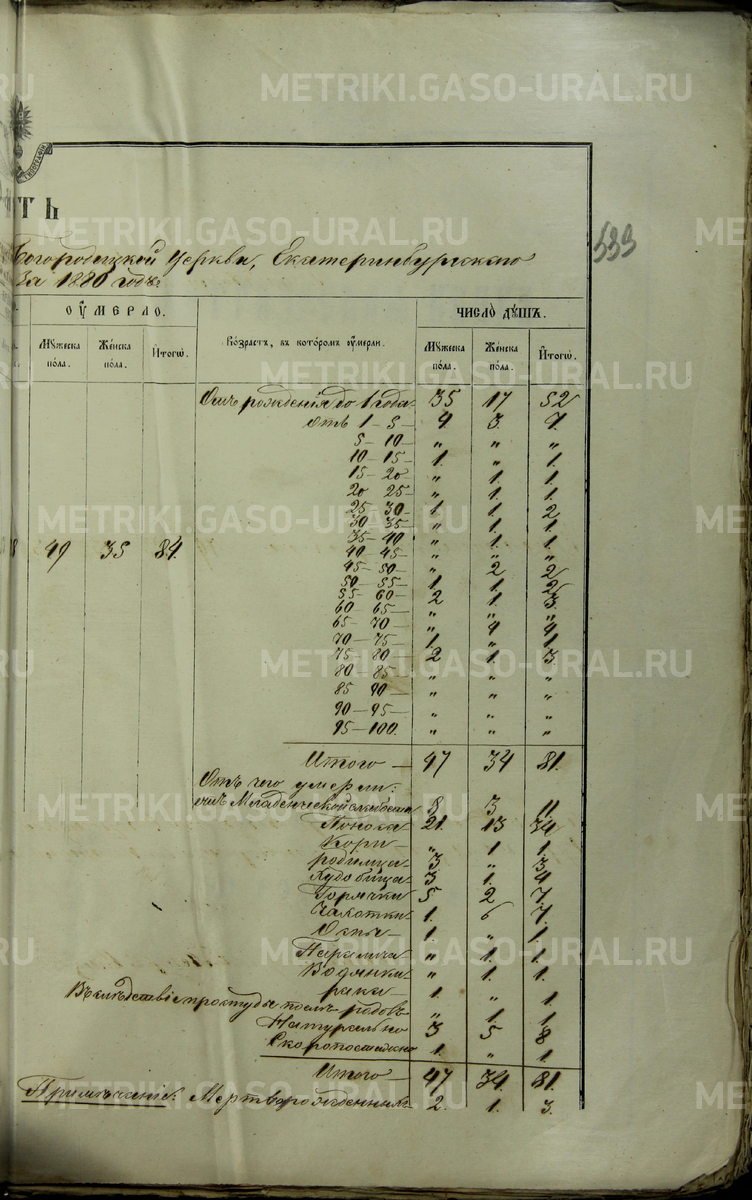 METRIKI.GASO-URAL.RU
ТЬ
Богородицкой церкви, Екатеринбургскаго
За 1880 годъ.
533
ОУМЕРЛО. ЧИСЛО ДУШЪ.
Мужеска пола. Женска пола. Итого. Возрастъ, въ которомъ оумерли. Мужеска пола. Женска пола. Итого.
Отъ рожденія до 1 года 35 17 52
Отъ 1 – 5 – 4. 3. 7.
5 – 10 – „ „ „
10 – 15 – 1. „ 1.
15 – 20 – „ 1. 1.
20 25 – „ 1. 1.
25 30 – 1. 1. 2
30 35 – „ 1. 1.
35 – 40 – „ 1. 1.
40 45 – „ „ „
49 35 84.
45 – 50 – „ 2 2
50 – 55 – 1 1. 2
55 – 60 – 2 1. 3.
60 65 – „ „ „
65 – 70 – „ 4 4
70 – 75 – 1. „ 1
75 – 80 – 2 1. 3.
80 85 – „ „ „
85 90 – „ „ „
90 – 95 – „ „ „
95 – 100. „ „ „
Итого – 47 34 81.
Отъ чего умерли:
отъ Младенческой слабости 8 3 11.
Поноса 21. 13 34.
Кори „ 1 1.
родимца 3 „ 3.
Худобища 3 1. 4
Горячки 5 2 7.
Чахотки 1. 6 7.
Оспы 1. „ 1.
Паралича „ 1. 1.
Водянка „ 1. 1.
рака 1. „ 1.
Вслѣдствіе простуды послѣ родовъ „ 1. 1
Натурально 3 5 8
Скоропостижно 1. „ 1.
Итого – 47 34. 81.
Примѣчаніе: Мертворожденныхъ 2. 1. 3.